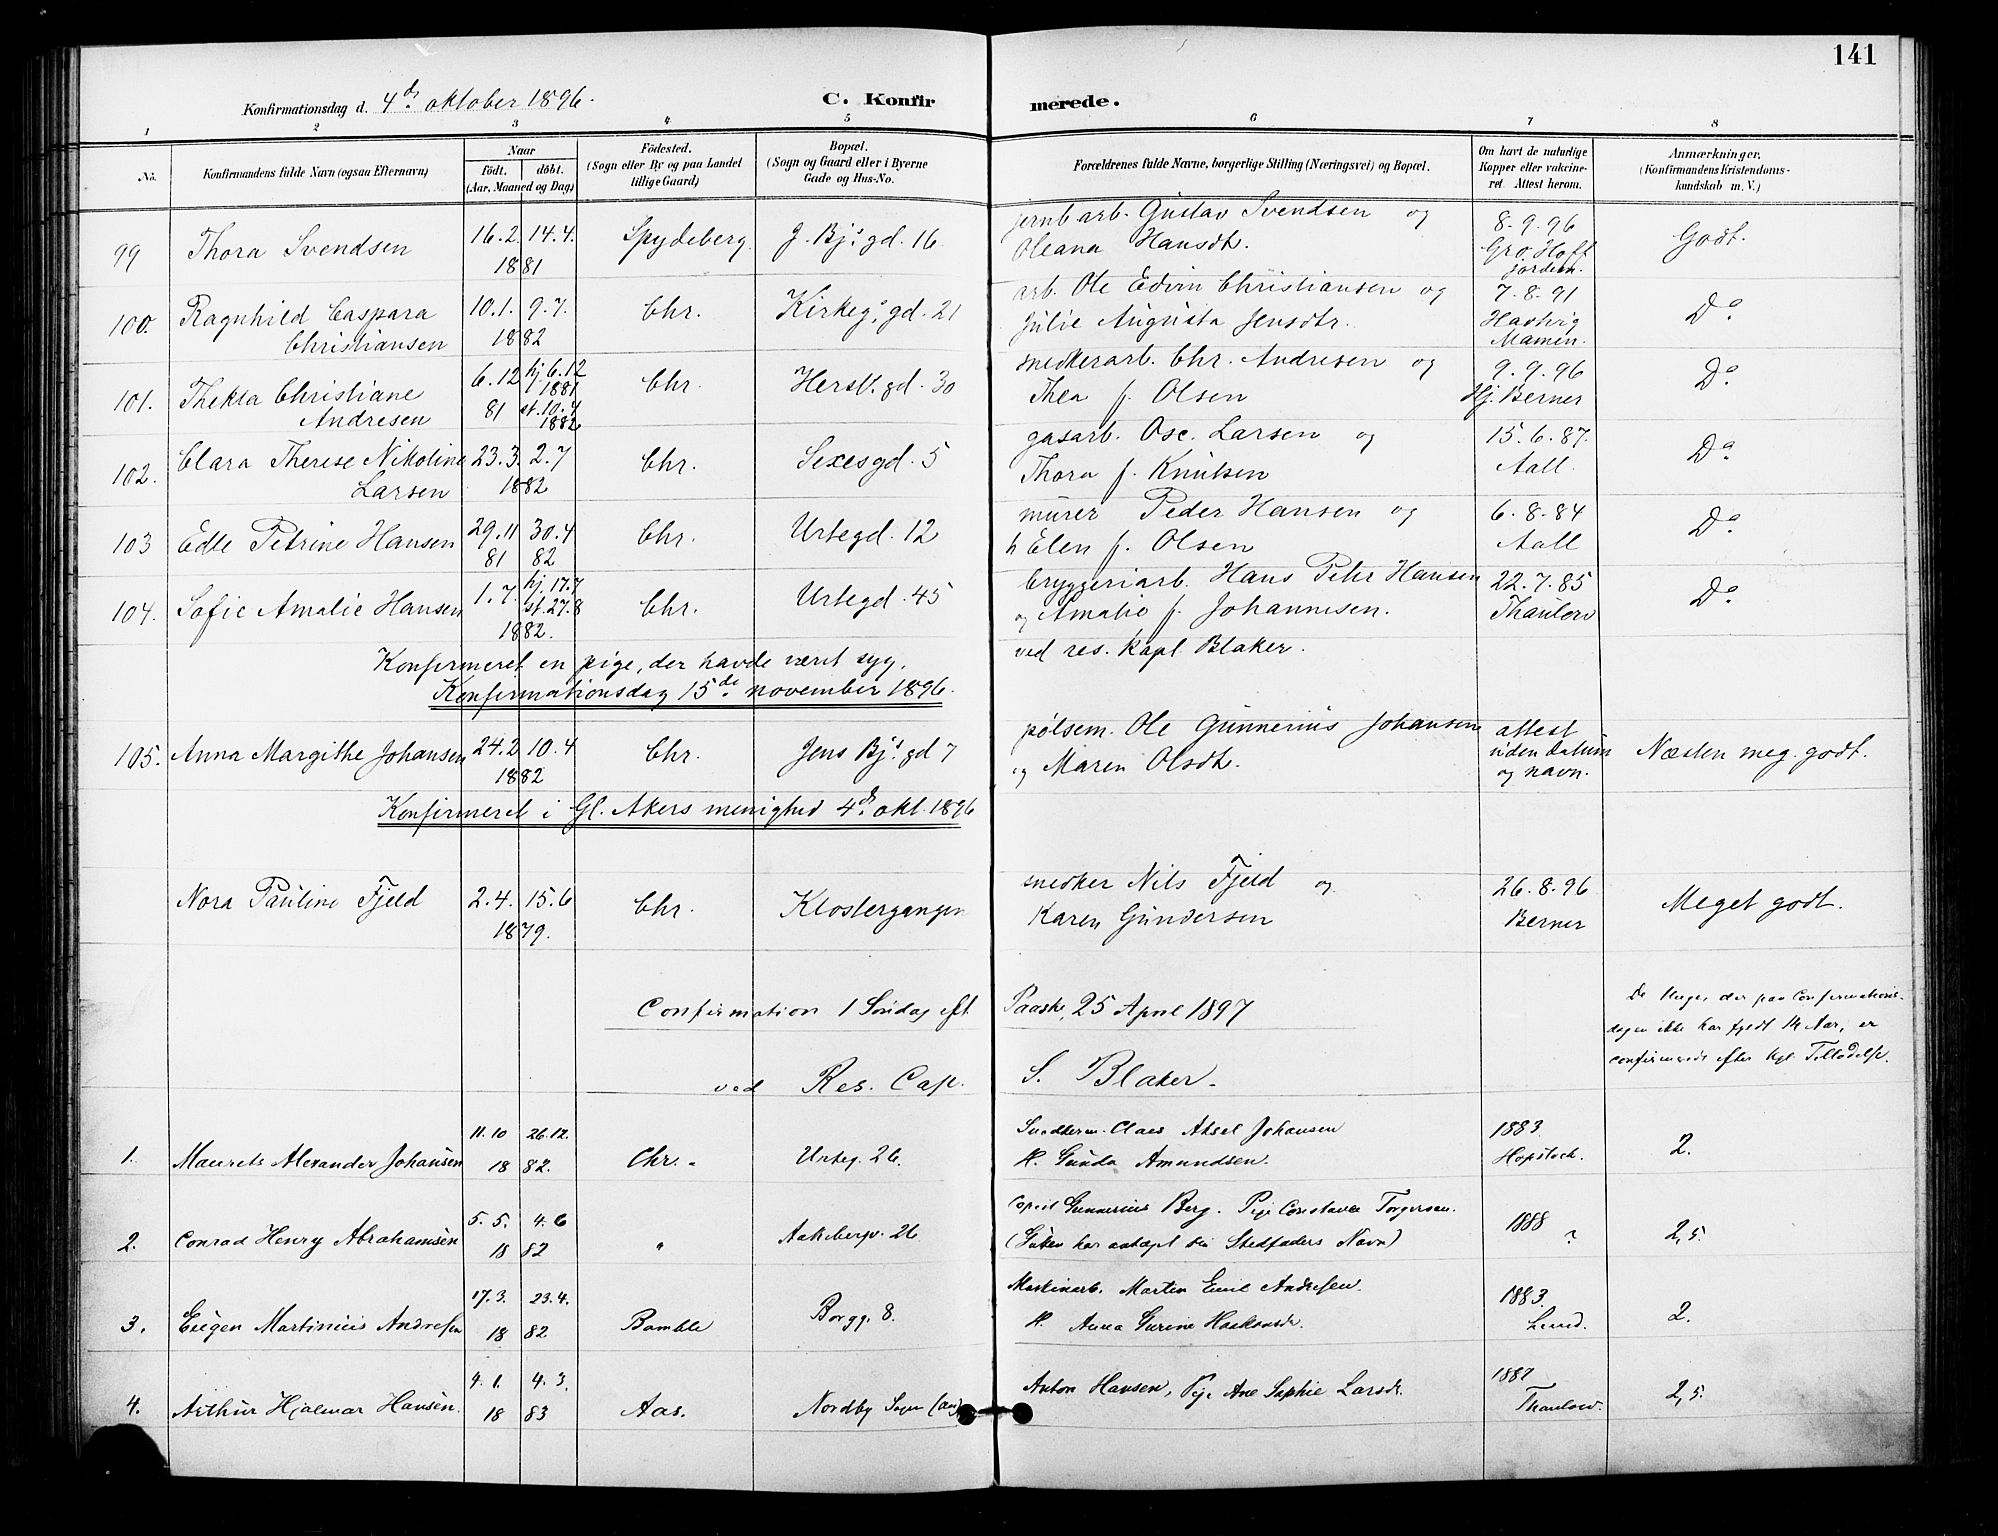 141
Konfirmationsdag d. 4de oktober 1896.
C. Konfirmerede.
1 2 3 4 5 6 7 8
No.
Konfirmandens fulde Navn (ogsaa Efternavn)
Naar
Födt. döbt.
(Aar, Maaned og Dag)
Födested.
(Sogn eller By og paa Landet
tillige Gaard)
Bopæl.
(Sogn og Gaard eller i Byerne
Gade og Hus-No.
Forældrenes fulde Navne, borgerlige Stilling (Næringsvei) og Bopæl.
Om havt de naturlige
Kopper eller vakcine-
ret. Attest herom.
Anmærkninger.
(Konfirmandens Kristendoms-
kundskab m. V.)
99 Thora Svendsen 16.2. 14.4. 1881 Spydeberg J. Bjs gd. 16
jernb arb. Gustav Svendsen og
Oleana Hansdt.
8.9.96
Gro. Hoff
jordem.
Godt.
100. Ragnhild Caspara
Christiansen
10.1. 9.7. 1882 Chr. Kirkeg. gd. 21
arb. Ole Edvin Christiansen og
Julie Augusta Jensdtr.
7.8.91
Hartvig
Mamen.
Do
101. Thekla Christiane
Andresen
6.12 81
hj 6.12
1881
st. 10.4
1882
Chr. Hersl. gd. 30
snedkerarb. Chr. Andresen og
Thea f. Olsen
9.9.96
Hj. Berner
Do
102. Clara Therese Nikoline
Larsen
23.3. 2.7 1882 Chr. Sexesgd. 5
gasarb. Osc. Larsen og
Thora f. Knutsen
15.6.87.
Aall.
Do
103 Edle Petrine Hansen 29.11 81 30.4 82 Chr. Urtegd. 12
murer Peder Hansen og
h Elen f. Olsen
6.8.84
Aall
Do
104. Sofie Amalie Hansen 1.7. hj. 17.7 st. 27.8 1882. Chr. Urtegd. 45
bryggeriarb. Hans Peter Hansen
og Amalie f. Johannesen.
22.7.85
Thaulow
Do
Konfirmeret en pige, der havde været syg, ved res. kapl Blaker.
Konfirmationsdag 15de november 1896.
105. Anna Margithe Johansen 24.2 10.4 1882 Chr. Jens Bjs gd 7
pølsem. Ole Gunnerius Johansen
og Maren Olsdt.
attest
uden datum
og navn.
Næsten meg. godt.
Konfirmeret i Gl. Akers menighed 4de okt. 1896
Nora Pauline Fjeld 2.4. 15.6 1879. Chr. Klostergangen
snedker Nils Fjeld og
Karen Gundersen
26.8.96
Berner
Meget godt.
Confirmation 1 Søndag eft. Paaske, 25 April 1897
ved Res. Cap. S. Blaker.
De Unge, der paa Confirmations-
dagen ikke har fyldt 14 Aar, er
confirmerede efter kgl. Tilladelse.
1. Maurits Alexander Johansen 11.10 26.12. 1882. Chr. Urteg. 26.
Claes Aksel Johansen
H. Gunda Amundsen.
1883.
Hopstock.
2.
2. Conrad Henry Abrahamsen 5.5. 4.6 1882 " Aakebergv. 26
Gunnerius Berg. Pige Constance Torgersen.
(Gutten har antaget sin Stedfaders Navn)
1888
?
2,5.
3. Eugen Martinius Andresen 17.3. 23.4. 1882 Bamble Borgg. 8.
Maskinarb. Martin Emil Andresen.
H. Anna Gurine Haakonsdr.
1883.
Lund.
2.
4. Arthur Hjalmar Hansen. 4.1. 4.3. 1883 Aas. Nordby Sogn (Aas)
Anton Hansen, Pige Ane Sophie Larsdr.
1887
Thaulow.
2,5.